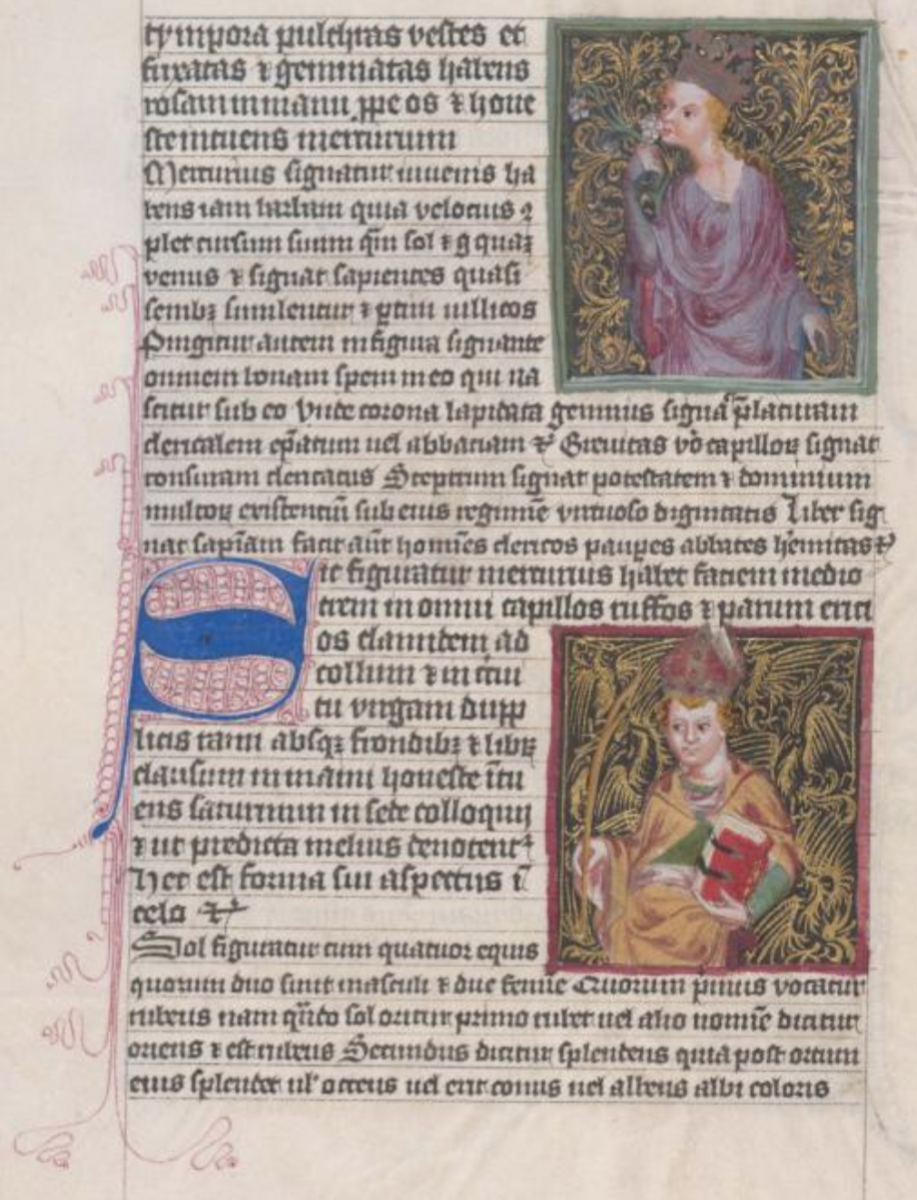 tympora pulchras vestes et
furatas ⁊ gemmatas habens
rosam in manu ꝓpe os ⁊ hone
ste intuens mercurium
Mercurius signatur iuuenis ha
bens iam barbam quia velocius
plet cursum suum qm̄ sol
venus ⁊ signat sapientes quasi
semꝑ ⁊ ꝑtim
Pingitur autem in figura signante
omnem bonam spem in eo qui na
scitur sub eo Vnde corona lapidata gemmis signat p̄laturam
clericalem ep̄atum uel abbaciam ⁊c̄ Breuitas v̊o capilloꝝ signat
tonsuram clericatus Sceptrum signat potestatem ⁊ dominium
multoꝝ existentiū sub eius regimīe virtuoso dignitatis Liber sig
nat sapīam facit aūt homīes clericos pauꝑes abbates h̓emitas ⁊c̄
Sic figuratur mercurius habet faciem medio
crem in omni capillos ruffos ⁊ parum crici
os clamitem ad
collum ⁊ in
tu virgam dupp
licis rami absqꝫ frondibꝫ ⁊ librꝫ
clausum in manu honeste ītu
ens saturnum in sede colloquij
⁊ ut predicta melius denotent᷑
Hec est forma sui aspectus ī
celo ⁊c̄
Sol figuratur cum quatuor equis
quorum duo sunt masculi ⁊ due femīe Quorum p̓mus vocatur
rubeus nam qn̄do sol oritur primo rubet uel alio nomīe dicitur
oriens ⁊ est rubeus Secundus dicitur splendens quia post ortum
eius splendet ul̓ uel uel albeus albi coloris